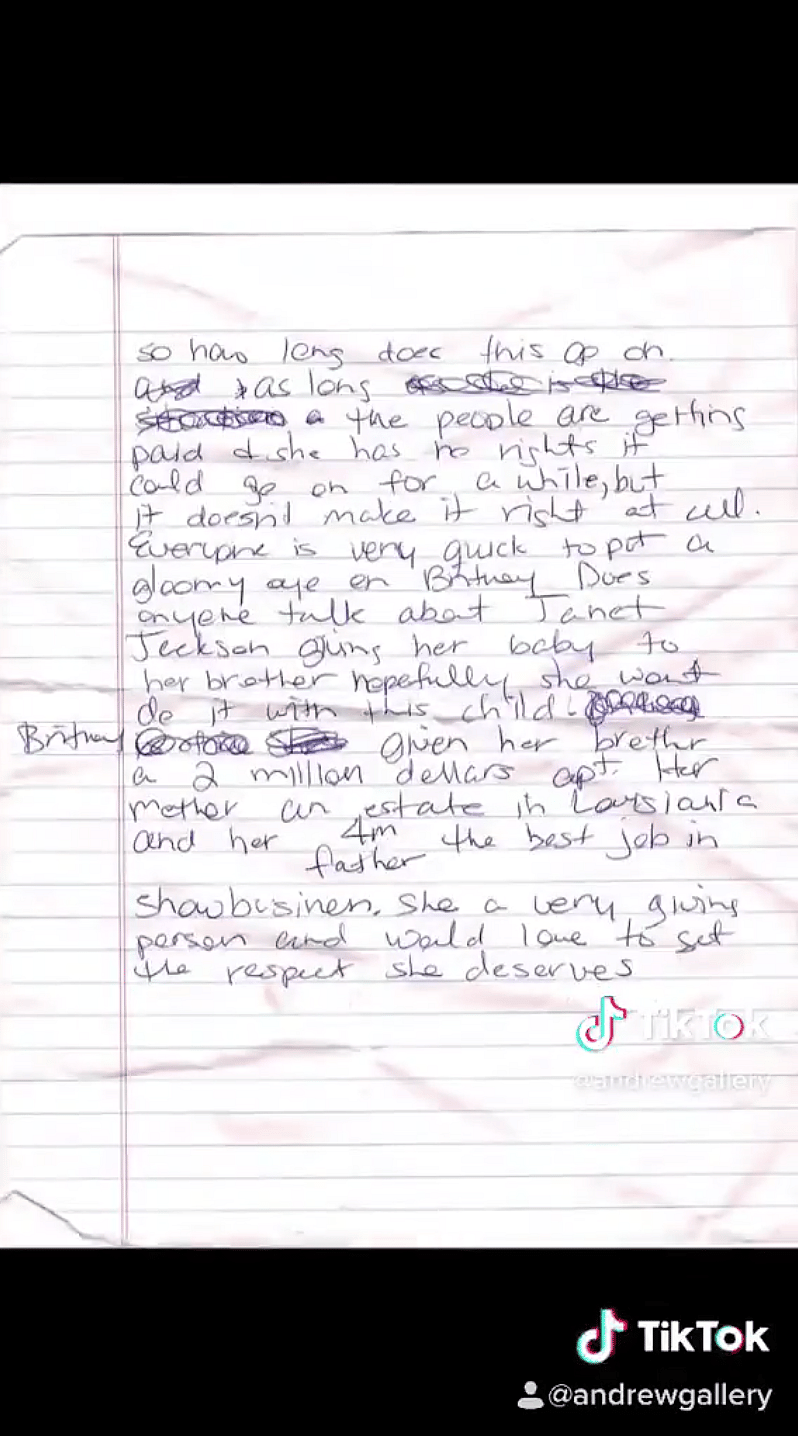 so how long does this go on.
and as long
the people are getting
paid & she has no rights it
could go on for a while, but
it doesn't make it right at all.
Everyone is very quick to put a
gloomy eye on Britney Does
anyone talk about Janet
Jeckson giving her baby to
her brother hopefully she wont
do it with this child.
Britney given her brother
a 2 million dollars apt. Her
mother an estate in Louisiana
and her 4m the best job in
father
showbusiness. She a very giving
person and would love to get
the respect she deserves
TikTok
@andrewgallery
TikTok
@andrewgallery